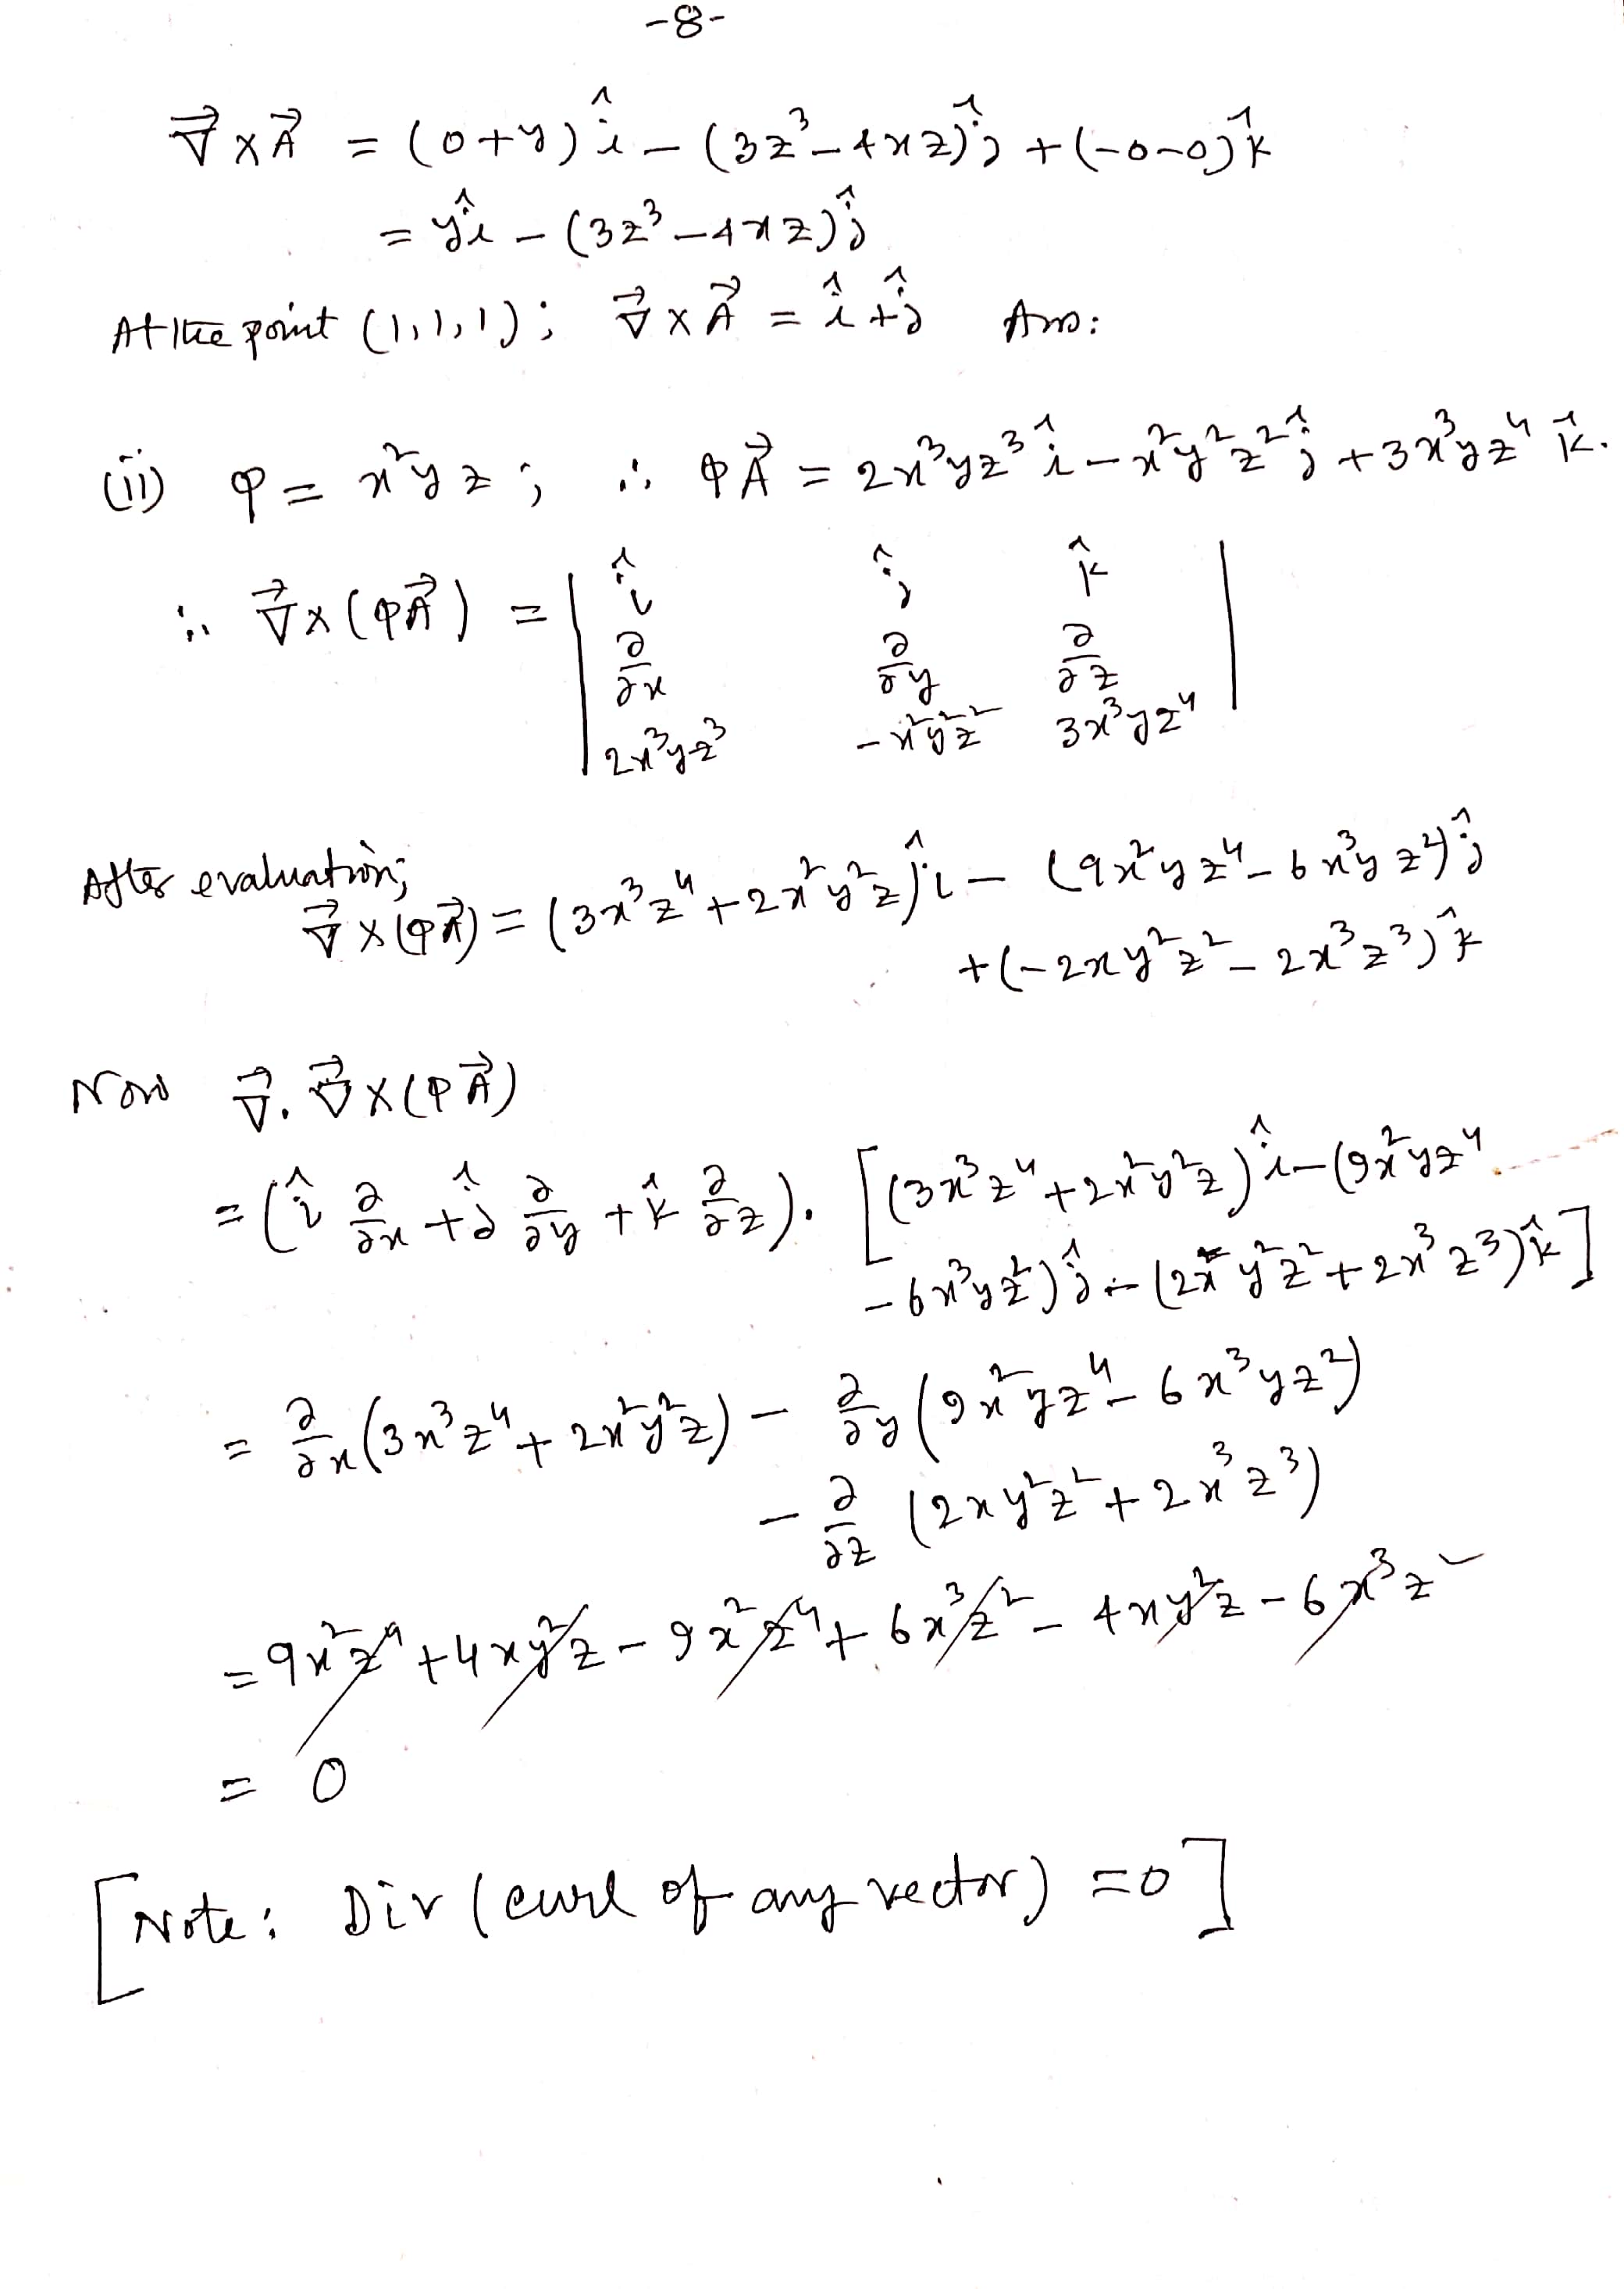 -8-
∇⃗ × A⃗ = (0+y) î - (3z³ - 4xz) ĵ + (-0-0) k̂
= y î - (3z³ - 4xz) ĵ
At the point (1,1,1); ∇⃗ × A⃗ = î + ĵ Ans:
(ii) φ = x²yz ; ∴ φA⃗ = 2x³yz³ î - x²y²z² ĵ + 3x³yz⁴ k̂.
∴ ∇⃗ × (φA⃗) = | î ĵ k̂ |
∂/∂x ∂/∂y ∂/∂z
2x³yz³ -x²y²z² 3x³yz⁴
After evaluation;
∇⃗ × (φA⃗) = (3x³z⁴ + 2x²y²z) î - (9x²yz⁴ - 6x³yz²) ĵ
+ (-2xy²z² - 2x³z³) k̂
Now ∇⃗ . ∇⃗ × (φA⃗)
= (î ∂/∂x + ĵ ∂/∂y + k̂ ∂/∂z) . [(3x³z⁴ + 2x²y²z) î - (9x²yz⁴
- 6x³yz²) ĵ - (2xy²z² + 2x³z³) k̂]
= ∂/∂x (3x³z⁴ + 2x²y²z) - ∂/∂y (9x²yz⁴ - 6x³yz²)
- ∂/∂z (2xy²z² + 2x³z³)
= 9x²z⁴ + 4xy²z - 9x²z⁴ + 6x³z² - 4xy²z - 6x³z²
= 0
[Note: Div (curl of any vector) = 0]